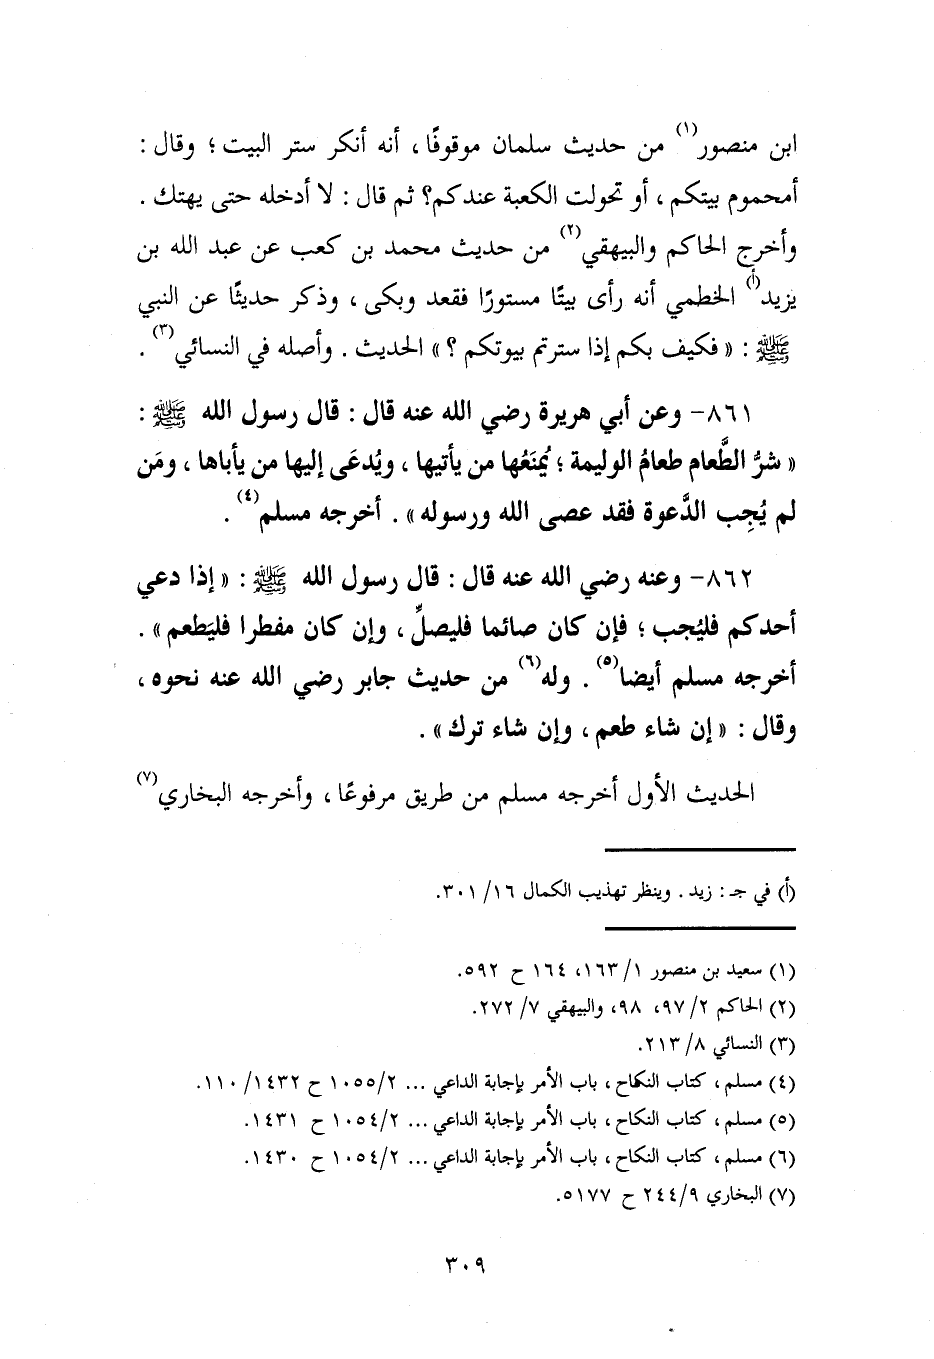 ابن منصور(١) من حديث سلمان موقوفًا ، أنه أنكر ستر البيت ؛ وقال :
أمحموم بيتكم ، أو تحولت الكعبة عندكم؟ ثم قال : لا أدخله حتى يهتك .
وأخرج الحاكم والبيهقي(٢) من حديث محمد بن كعب عن عبد الله بن
يزيد(أ) الخطمي أنه رأى بيتًا مستورًا فقعد وبكى ، وذكر حديثًا عن النبي
ﷺ : « فكيف بكم إذا سترتم بيوتكم ؟ » الحديث . وأصله في النسائي(٣) .
٨٦١- وعن أبي هريرة رضي الله عنه قال : قال رسول الله ﷺ :
« شرُّ الطَّعام طعامُ الوليمة ؛ يُمنَعُها من يأتيها ، ويُدعَى إليها من يأباها ، ومَن
لم يُجِب الدَّعوة فقد عصى الله ورسوله » . أخرجه مسلم(٤) .
٨٦٢- وعنه رضي الله عنه قال : قال رسول الله ﷺ : « إذا دعي
أحدكم فليُجب ؛ فإن كان صائما فليصلِّ ، وإن كان مفطرا فليَطعم » .
أخرجه مسلم أيضا(٥) . وله(٦) من حديث جابر رضي الله عنه نحوه ،
وقال : « إن شاء طعم ، وإن شاء ترك » .
الحديث الأول أخرجه مسلم من طريق مرفوعًا ، وأخرجه البخاري(٧)
(أ) في جـ : زيد . وينظر تهذيب الكمال ١٦/ ٣٠١.
(١) سعيد بن منصور ١/ ١٦٣، ١٦٤ ح ٥٩٢.
(٢) الحاكم ٢/ ٩٧، ٩٨، والبيهقي ٧/ ٢٧٢.
(٣) النسائي ٨/ ٢١٣.
(٤) مسلم ، كتاب النكاح ، باب الأمر بإجابة الداعي ... ١٠٥٥/٢ ح ١٤٣٢/ ١١٠.
(٥) مسلم ، كتاب النكاح ، باب الأمر بإجابة الداعي ... ١٠٥٤/٢ ح ١٤٣١.
(٦) مسلم ، كتاب النكاح ، باب الأمر بإجابة الداعي ... ١٠٥٤/٢ ح ١٤٣٠.
(٧) البخاري ٢٤٤/٩ ح ٥١٧٧.
٣٠٩